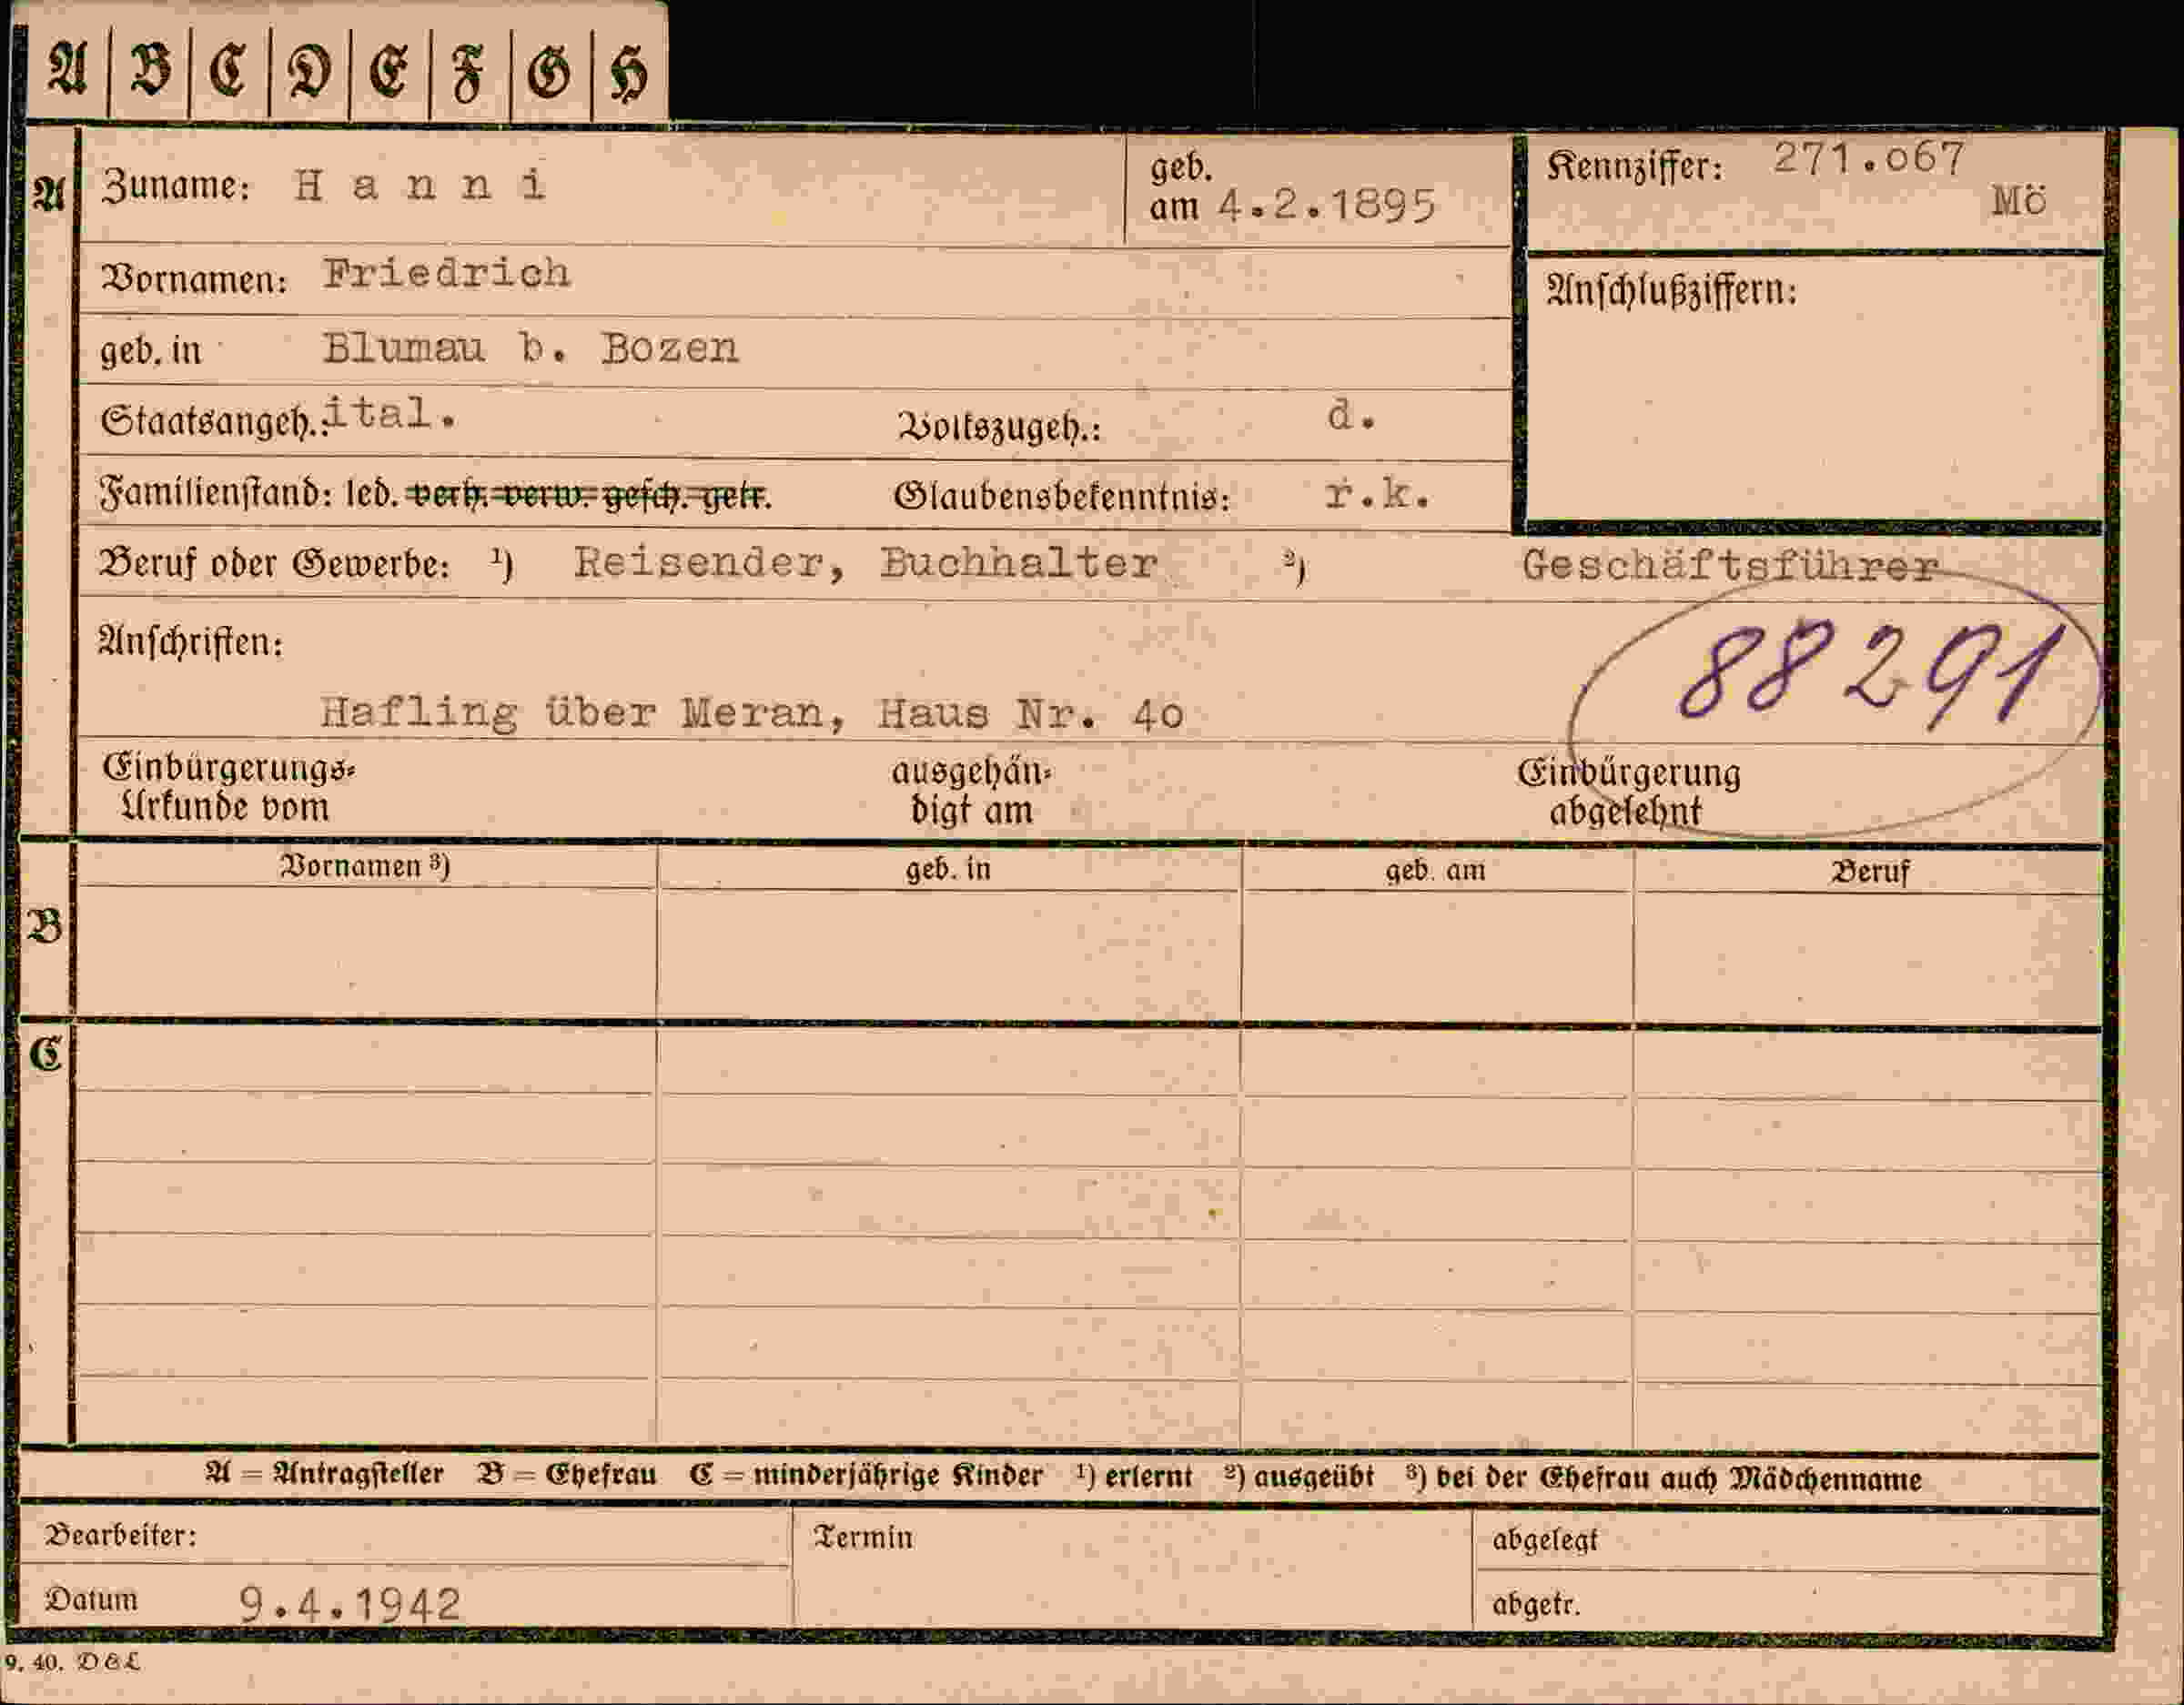 A B C D E F G H
A Zuname: H a n n i geb. am 4.2.1895 Kennziffer: 271.067 Mö
Vornamen: Friedrich Anschlußziffern:
geb. in Blumau b. Bozen
Staatsangeh.: ital. Volkszugeh.: d.
Familienstand: led. verh. verw. gesch. getr. Glaubensbekenntnis: r.k.
Beruf oder Gewerbe: ¹) Reisender, Buchhalter ²) Geschäftsführer
Anschriften: 88291
Hafling über Meran, Haus Nr. 40
Einbürgerungs- ausgehän- Einbürgerung
Urkunde vom digt am abgelehnt
Vornamen ³) geb. in geb. am Beruf
B
C
A = Antragsteller B = Ehefrau C = minderjährige Kinder ¹) erlernt ²) ausgeübt ³) bei der Ehefrau auch Mädchenname
Bearbeiter: Termin abgelegt
Datum 9.4.1942 abgetr.
9. 40. D&L